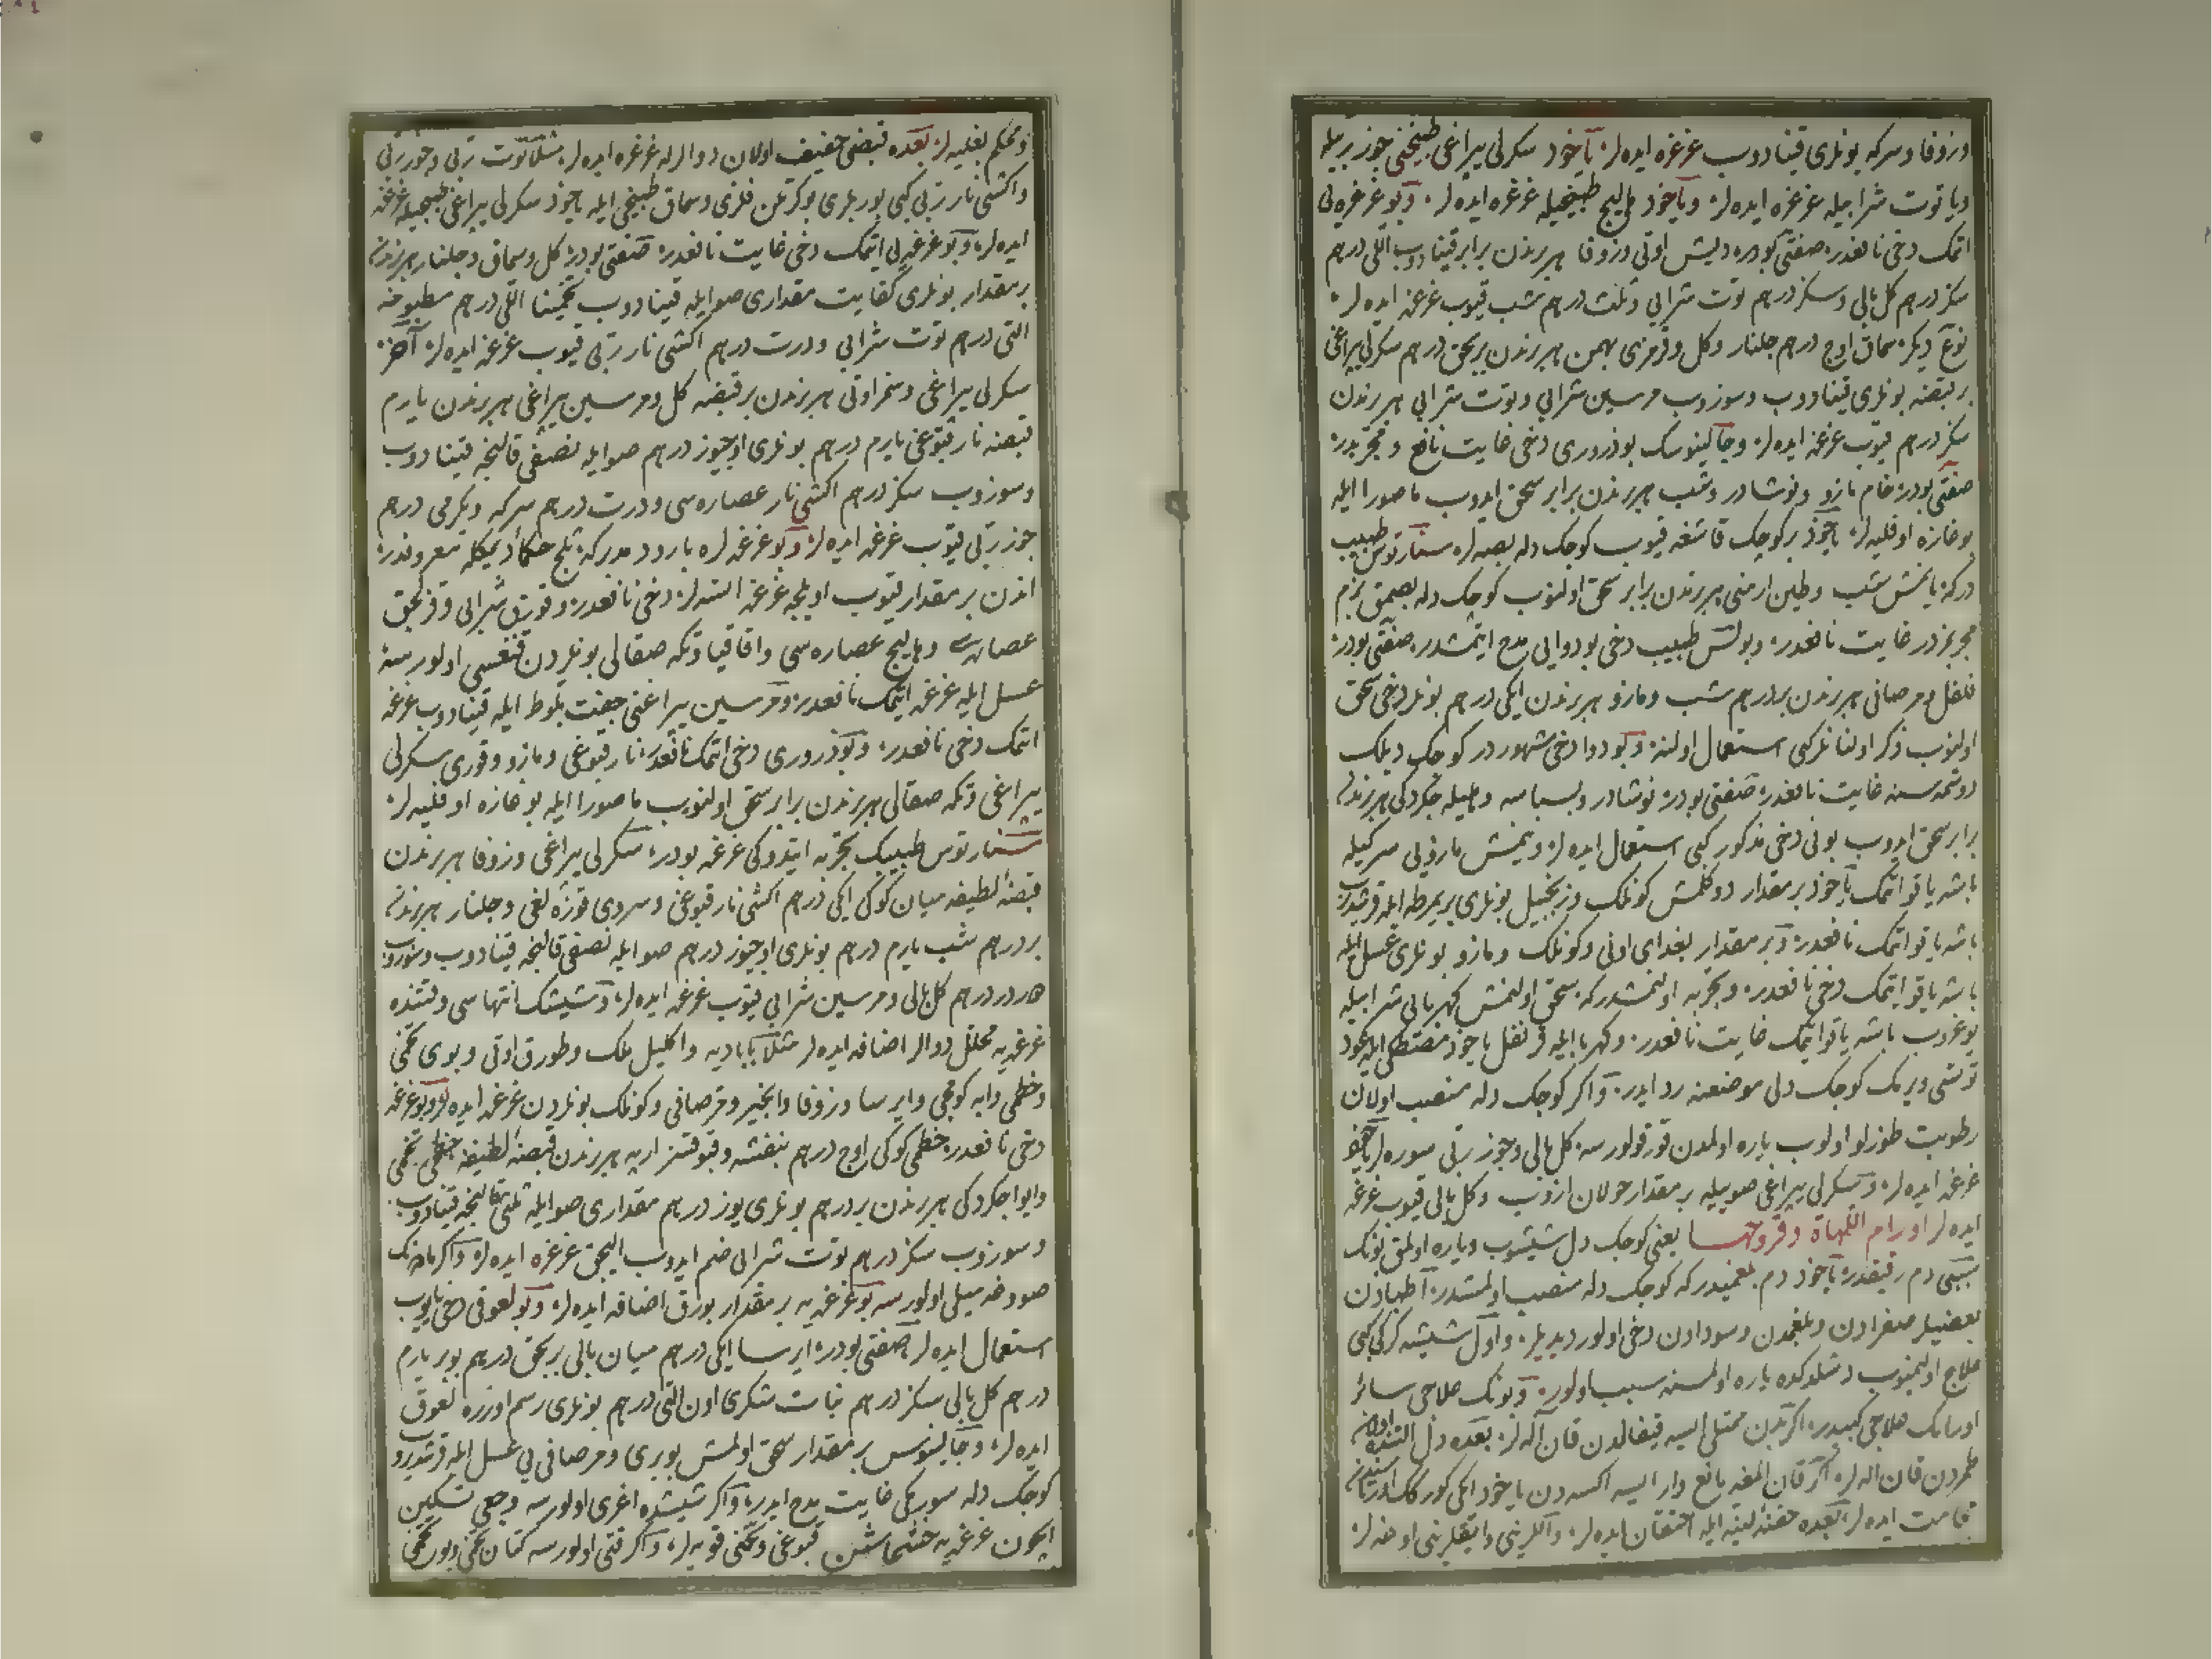 وزوفا وسركه بونلری قینادوب غرغره ایده لر یاخود سكرلی یپراغی طبیخنی جوز ربیله
ویا توت شرابیله غرغره ایده لر ویاخود هلیلج طبیخیله غرغره ایده لر وبو غرغره یی
اتمك دخی نافعدر صفتی بودر دلیش اوتی وزوفا هر برندن برابر قینادوب اللی درهم
سكز درهم كل بالی وسكز درهم توت شرابی وثلث درهم شب قیوب غرغره ایده لر
نوع دیكر سماق اوچ درهم جلنار وكل وقرمزی بهمن هر برندن بر بچق درهم سكرلی یپراغی
بر قبضه بونلری قینادوب وسوزوب مرسین شرابی وتوت شرابی هر برندن
سكز درهم قیوب غرغره ایده لر وجالینوسك بو ذروری دخی غایت نافع ومجربدر
صفتی بودر خام مازو ونوشادر وشب هر برندن برابر سحق ایدوب ماصورا ایله
بوغازه اوفلیه لر یاخود بر كوچك قاشغه قیوب كوچك دله بصه لر سنارتوس طبیب
دركه یانمش شب وطین ارمنی هر برندن برابر سحق اولنوب كوچك دله بصمق بزم
مجربمزدر غایت نافعدر وبولس طبیب دخی بو دوایی مدح ایتمشدر صفتی بودر
فلفل ومرصافی هر برندن بر درهم شب ومازو هر برندن ایكی درهم بونلر دخی سحق
اولنوب ذكر اولنانلر كبی استعمال اولنه وبو دوا دخی مشهوردر كوچك دیلك
دوشمه سنه غایت نافعدر صفتی بودر نوشادر وبسباسه وهلیله چكردكی هر برندن
برابر سحق ایدوب بونی دخی مذكور كبی استعمال ایده لر ویمنش مازویی سركیله
باشه یاقو اتمك یاخود بر مقدار دوكلمش كونلك وزنجبیل بونلری بر یمرطه ایله قرشدروب
باشه یاقو اتمك نافعدر وبر مقدار بغدای اونی وكونلك ومازو بونلری عسل ایله
باشه یاقو ایتمك دخی نافعدر وتجربه اولنمشدر كه سحق اولنمش كهربایی شرابیله
یوغروب باشه یاقو ایتمك غایت نافعدر وكهربا ایله قرنفل یاخود مصطكی ایله بخور
توتسی ویرمك كوچك دلی موضعنه رد ایدر واكر كوچك دله منصب اولان
رطوبت طوزلو اولوب یاره اولمدن قورقولورسه كل بالی وجوز ربی سوره لر یاخود
غرغره ایده لر وسكرلی یپراغی صوییله بر مقدار حولان ازوب وكل بالی قیوب غرغره
ایده لر اورام اللهاة وقروحها یعنی كوچك دل شیشوب ویاره اولمق بونك
سببی دم رقیقدر یاخود دم بلغمیدر كه كوچك دله منصب اولمشدر اطبادن
بعضیلر صفرادن وبلغمدن وسودادن دخی اولور دیدیلر واول شیشه كركی كبی
علاج اولنمیوب دشلدكده یاره اولمسنه سبب اولور وبونك علاجی سائر
اورامك علاجی كبیدر اكر بدن ممتلی ایسه قیفالدن قان آله لر بعده دل التنده اولان
طمردن قان اله لر اكر قان المغه مانع وار ایسه اكسه دن یاخود ایكی كورك اورتاسندن
حجامت ایده لر بعده حقنۀ لینه ایله احتقان ایده لر واللرینی وایقلرینی اوغه لر
ومحكم بغلیه لر بعده قبضی خفیف اولان دوالرله غرغره ایده لر مثلا توت ربی وجوز ربی
واكشی نار ربی كبی بوربلری بوكرتلن فلزی وسماق طبیخی ایله یاخود سكرلی یپراغی طبیخیله غرغره
ایده لر وبو غرغره یی اتمك دخی غایت نافعدر صفتی بودر كل وسماق وجلنار هر برندن
بر مقدار بونلری كفایت مقداری صو ایله قینادوب تخمینا اللی درهم مطبوخه
التی درهم توت شرابی ودرت درهم اكشی نار ربی قیوب غرغره ایده لر آخر
سكرلی یپراغی وسخر اوتی هر برندن بر قبضه كل ومرسین یپراغی هر برندن یارم
قبضه نار قبوغی یارم درهم بونلری اوچیوز درهم صو ایله نصفی قالنجه قینادوب
وسوزوب سكز درهم اكشی نار عصاره سی ودرت درهم سركه ویكرمی درهم
جوز ربی قیوب غرغره ایده لر وبو غرغره لره بارد ومدركه ثلج حكما دیمكله معروفدر
اندن بر مقدار قیوب اویلجه غرغره ایتسه لر دخی نافعدر وقویق شرابی وقزلجق
عصاره سی وهلیلج عصاره سی واقاقیا وتكه صقالی بونلردن قنغسی اولورسه
عسل ایله غرغره ایتمك نافعدر ومرسین یپراغنی جفت بلوط ایله قینادوب غرغره
اتمك دخی نافعدر وبو ذروری دخی اتمك نافعدر نار قبوغی ومازو وقوری سكرلی
یپراغی وتكه صقالی هر برندن برابر سحق اولنوب ماصورا ایله بوغازه اوفلیه لر
سنارتوس طبیبك تجربه ایتدوكی غرغره بودر سكرلی یپراغی وزوفا هر برندن
قبضۀ لطیفه میان كوكی ایكی درهم اكشی نار قبوغی وسروی قوزه لغی وجلنار هر برندن
بر درهم شب یارم درهم بونلری اوچیوز درهم صو ایله نصفی قالنجه قینادوب وسوزوب
هر درهم كل بالی ومرسین شرابی قیوب غرغره ایده لر وشیشك انتهاسی وقتنده
غرغره یه محلل دوالر اضافه ایده لر مثلا بابادیه واكلیل ملك وطورق اوتی وبوی تخمی
وخطمی وابه كومجی وایرسا وزوفا وانجیر ومرصافی وكونلك بونلردن غرغره ایده لر وبو غرغره
دخی نافعدر خطمی كوكی اوچ درهم بنفشه وقبوقسز ارپه هر برندن قبضۀ لطیفه خطمی تخمی
وایوا چكردكی هر برندن بر درهم بونلری یوز درهم مقداری صو ایله ثلثی قالنجه قینادوب
وسوزوب سكز درهم توت شرابی ضم ایدوب الیجق غرغره ایده لر واكر ماده نك
صودخه میلی اولورسه بو غرغره یه بر مقدار بورق اضافه ایده لر وبو لعوقی دخی یاپوب
استعمال ایده لر صفتی بودر ایرسا ایكی درهم میان بالی بر بچق درهم بوره یارم
درهم كل بالی سكز درهم نبات شكری اون التی درهم بونلری رسم اوزره لعوق
ایده لر وجالینوس بر مقدار سحق اولمش بوبری ومرصافی یی عسل ایله قرشدروب
كوچك دله سورمكی غایت مدح ایدر واكر شیشده اغری اولورسه وجعی تسكین
ایچون غرغره یه خشخاشك قبوغی وتخمنی قویه لر واكر قتی اولورسه كتان تخمی وبوی تخمی